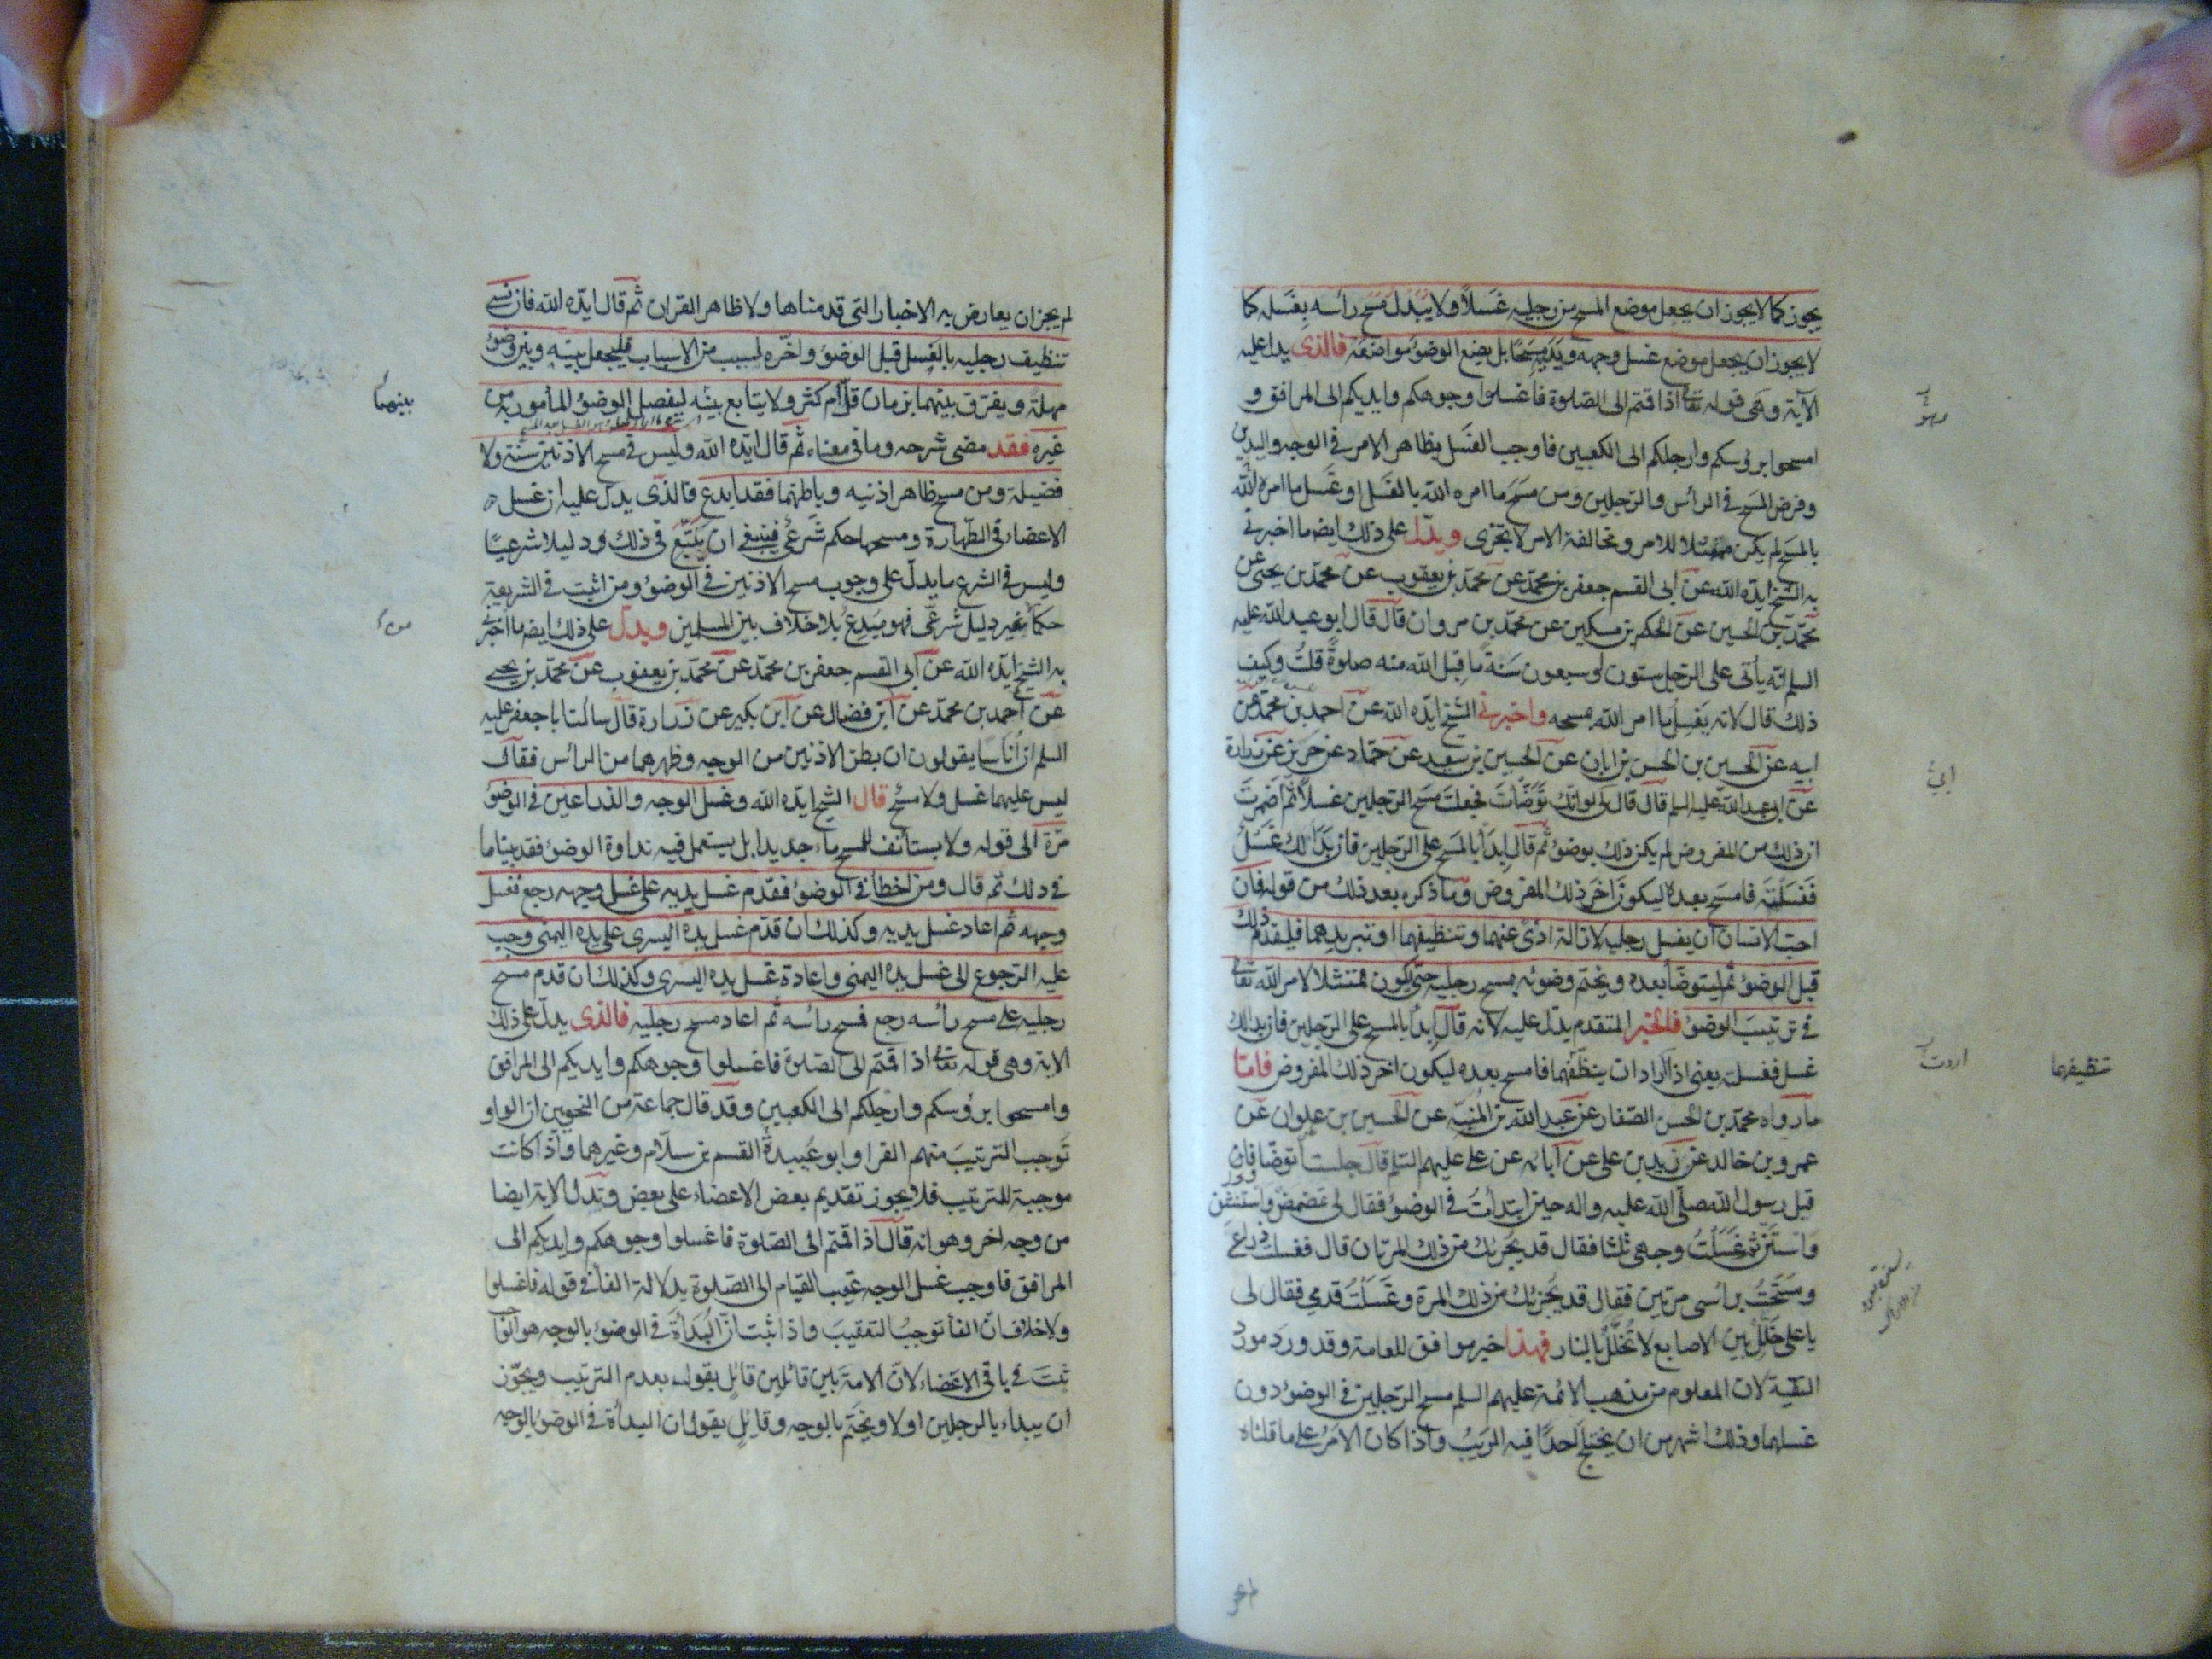 يجوز كما لا يجوز ان يجعل موضع المسح من رجليه غسلًا ولا يبدل مسح رأسه بغسله كما
لا يجوز ان يجعل موضع غسل وجهه ويديه مسحًا بل يضع الوضوء مواضعه فالذي يدل عليه
الآية وهي قوله تعالى اذا قمتم الى الصلوة فاغسلوا وجوهكم وايديكم الى المرافق و
امسحوا برؤسكم وارجلكم الى الكعبين فاوجب الغسل بظاهر الامر في الوجه واليدين
وفرض المسح في الرأس والرجلين ومن مسح ما امره الله بالغسل او غسل ما امره الله
بالمسح لم يكن ممتثلا للامر ومخالفة الامر لا يجزى ويدل على ذلك ايضا ما اخبرني
به الشيخ ايده الله عن ابى القسم جعفر بن محمد عن محمد بن يعقوب عن محمد بن يحيى عن
محمد بن الحسين عن الحكم بن مسكين عن محمد بن مروان قال قال ابو عبد الله عليه
السلم انه يأتى على الرجل ستون او سبعون سنة ما قبل الله منه صلوة قلت وكيف
ذلك قال لانه يغسل ما امر الله بمسحه واخبرني الشيخ ايده الله عن احمد بن محمد عن
ابيه عن الحسين بن الحسن بن ابان عن الحسين بن سعيد عن حماد عن حريز عن زرارة
عن ابى عبد الله عليه السلم قال قال لى لو انك توضأت فجعلت مسح الرجلين غسلاً ثم اضمرت
ان ذلك من المفروض لم يكن ذلك بوضوء ثم قال ابدأ بالمسح على الرجلين فان بدا لك غسل
فغسلته فامسح بعده ليكون آخر ذلك المفروض وما ذكره بعد ذلك من قوله فان
احب الانسان ان يغسل رجليه لازالة اذى عنهما وتنظيفهما او تبريدهما فليقدم ذلك
قبل الوضوء ثم ليتوضأ بعده ويختم وضوئه بمسح رجليه حتى يكون ممتثلا لامر الله تعالى
في ترتيب الوضوء فالخبر المتقدم يدل عليه لانه قال ابدأ بالمسح على الرجلين فان بدا لك
غسل فغسلته يعنى اذا اراد ان ينظفهما فامسح بعده ليكون اخر ذلك المفروض فاما
ما رواه محمد بن الحسن الصفار عن عبد الله بن المنبه عن الحسين بن علوان عن
عمرو بن خالد عن زيد بن على عن آبائه عن على عليهم السلم قال جلست أتوضأ فاقبل
رسول الله صلى الله عليه واله حين ابتدأت في الوضوء فقال لى تمضمض واستنشق
واستنثر ثم غسلت وجهى ثلثا فقال قد يجزيك من ذلك المرتان قال فغسلت ذراعى
ومسحت برأسى مرتين فقال قد يجزيك من ذلك المرة وغسلت قدمى فقال لى
يا على خلل بين الاصابع لا تخلل بالنار فهذا خبر موافق للعامة وقد ورد مورد
التقية لان المعلوم من مذهب الائمة عليهم السلم مسح الرجلين في الوضوء دون
غسلهما وذلك اشهر من ان يختلج احدا فيه الريب واذا كان الامر على ما قلناه
وهو
ابى
اردت
تنظيفهما
لم يجز ان يعارض به الاخبار التى قدمناها ولا ظاهر القران ثم قال ايده الله فان نسى
تنظيف رجليه بالغسل قبل الوضوء واخّره لسبب من الاسباب فليجعل بينه وبين وضوءه
مهلة ويفرق بينهما بزمان قل أم كثر ولا يتابع بينه ليفصل الوضوء المأمور به من
غيره فقد مضى شرحه وما في معناه ثم قال ايده الله وليس في مسح الاذنين سنة ولا
فضيلة ومن مسح ظاهر اذنيه وباطنهما فقد ابدع فالذى يدل عليه ان غسل
الاعضاء في الطهارة ومسحها حكم شرعى فينبغى ان يتبع في ذلك دليلا شرعيًا
وليس في الشرع ما يدل على وجوب مسح الاذنين في الوضوء ومن اثبت في الشريعة
حكماً بغير دليل شرعى فهو مبدع بلا خلاف بين المسلمين ويدل على ذلك ايضا ما اخبرنى
به الشيخ ايده الله عن ابى القسم جعفر بن محمد عن محمد بن يعقوب عن محمد بن يحيى
عن احمد بن محمد عن ابن فضال عن ابن بكير عن زرارة قال سالت ابا جعفر عليه
السلم ان أناسا يقولون ان بطن الاذنين من الوجه وظهرهما من الرأس فقال
ليس عليهما غسل ولا مسح قال الشيخ ايده الله وغسل الوجه والذراعين في الوضوء
مرّة الى قوله ولا يستأنف للمسح ماء جديدا بل يستعمل فيه نداوة الوضوء فقد بينا ما
في ذلك ثم قال ومن اخطأ في الوضوء فقدم غسل يديه على غسل وجهه رجع فغسل
وجهه ثم اعاد غسل يديه وكذلك ان قدّم غسل يده اليسرى على يده اليمنى وجب
عليه الرجوع الى غسل يده اليمنى واعادة غسل يده اليسرى وكذلك ان قدم مسح
رجليه على مسح رأسه رجع فمسح رأسه ثم اعاد مسح رجليه فالذى يدل على ذلك
الاية وهى قوله تعالى اذا قمتم الى الصلوة فاغسلوا وجوهكم وايديكم الى المرافق
وامسحوا برؤسكم وارجلكم الى الكعبين وقد قال جماعة من النحويين ان الواو
توجب الترتيب منهم الفرا وابو عبيدة القسم بن سلّام وغيرهما واذا كانت
موجبة للترتيب فلا يجوز تقديم بعض الاعضاء على بعض وتدل الاية ايضا
من وجه اخر وهو انه قال اذا قمتم الى الصلوة فاغسلوا وجوهكم وايديكم الى
المرافق فاوجب غسل الوجه عقيب القيام الى الصلوة بدلالة الفأ في قوله فاغسلوا
ولا خلاف ان الفأ توجب التعقيب واذا ثبت ان البدأة في الوضوء بالوجه هو الواجب
ثبت في باقى الاعضاء لان الامة بين قائلين قائل يقول بعدم الترتيب ويجوّز
ان يبداء بالرجلين اولا ويختم بالوجه وقائل يقول ان البدأة في الوضوء بالوجه
بينهما
من